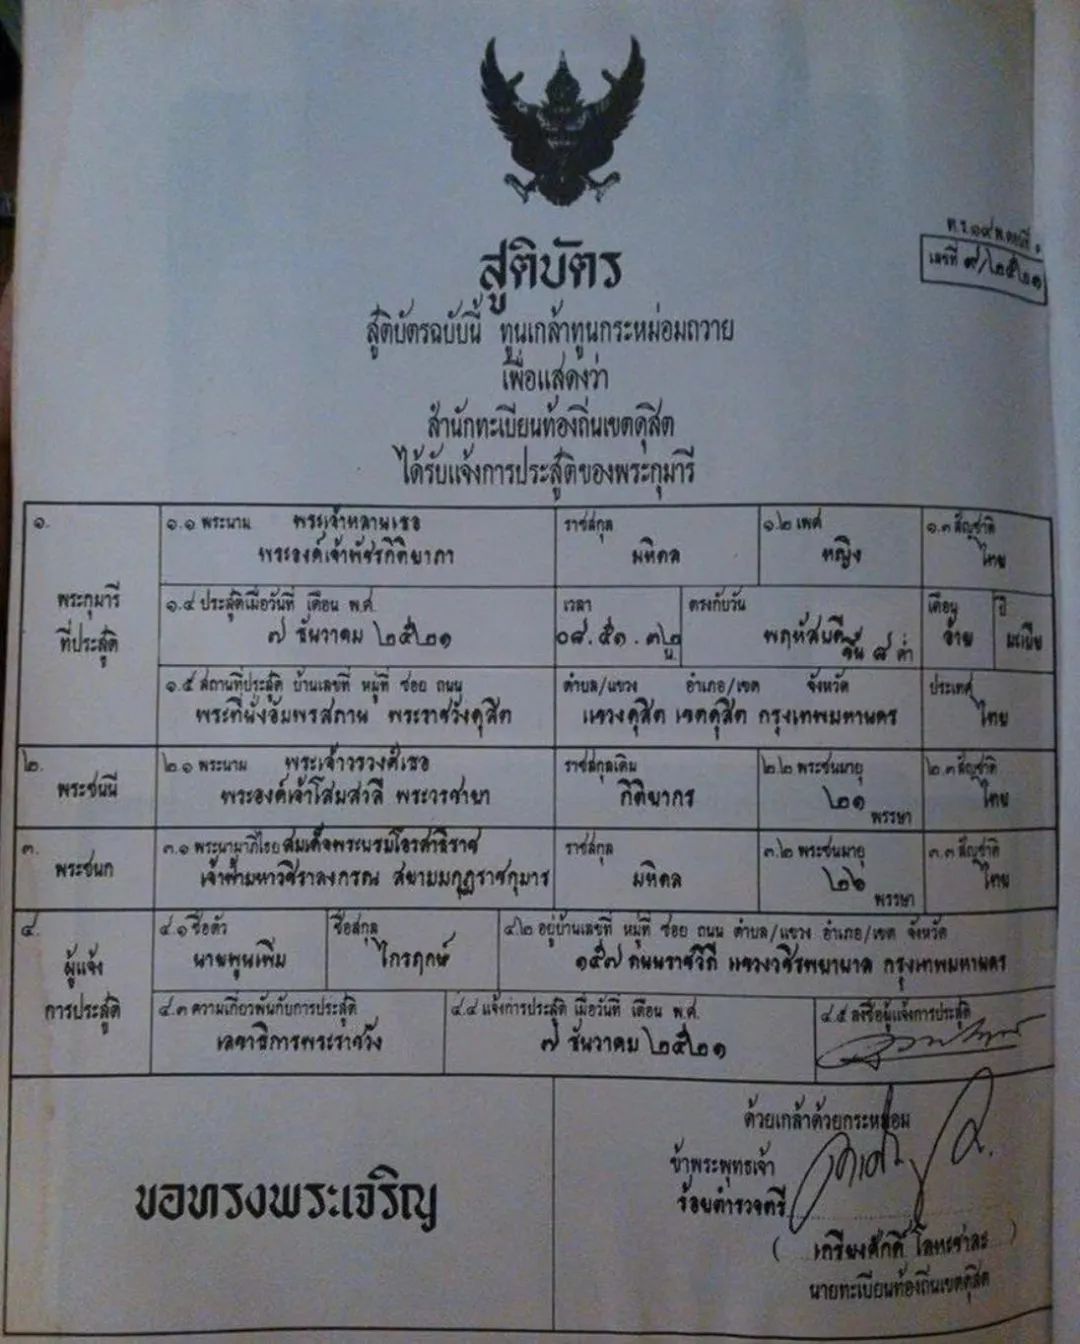 ท.ร.๑๙ พ.ตอนที่ ๑
เลขที่ ๙/๒๕๒๑
สูติบัตร
สูติบัตรฉบับนี้ ทูนเกล้าทูนกระหม่อมถวาย
เพื่อแสดงว่า
สำนักทะเบียนท้องถิ่นเขตดุสิต
ได้รับแจ้งการประสูติของพระกุมารี
๑.
พระกุมารี
ที่ประสูติ
๑.๑ พระนาม พระเจ้าหลานเธอ
พระองค์เจ้าพัชรกิติยาภา
ราชสกุล
มหิดล
๑.๒ เพศ
หญิง
๑.๓ สัญชาติ
ไทย
๑.๔ ประสูติเมื่อวันที่ เดือน พ.ศ.
๗ ธันวาคม ๒๕๒๑
เวลา
๐๘.๕๑.๓๒
น.
ตรงกับวัน
พฤหัสบดี
ขึ้น ๘ ค่ำ
เดือน
อ้าย
ปี
มะเมีย
๑.๕ สถานที่ประสูติ บ้านเลขที่ หมู่ที่ ซอย ถนน
พระที่นั่งอัมพรสถาน พระราชวังดุสิต
ตำบล/แขวง อำเภอ/เขต จังหวัด
แขวงดุสิต เขตดุสิต กรุงเทพมหานคร
ประเทศ
ไทย
๒.
พระชนนี
๒.๑ พระนาม พระเจ้าวรวงศ์เธอ
พระองค์เจ้าโสมสวลี พระวรชายา
ราชสกุลเดิม
กิติยากร
๒.๒ พระชนมายุ
๒๑
พรรษา
๒.๓ สัญชาติ
ไทย
๓.
พระชนก
๓.๑ พระนามาภิไธย สมเด็จพระบรมโอรสาธิราช
เจ้าฟ้ามหาวชิราลงกรณ สยามมกุฎราชกุมาร
ราชสกุล
มหิดล
๓.๒ พระชนมายุ
๒๖
พรรษา
๓.๓ สัญชาติ
ไทย
๔.
ผู้แจ้ง
การประสูติ
๔.๑ ชื่อตัว
นายพูนเพิ่ม
ชื่อสกุล
ไกรฤกษ์
๔.๒ อยู่บ้านเลขที่ หมู่ที่ ซอย ถนน ตำบล/แขวง อำเภอ/เขต จังหวัด
๑๕๗ ถนนราชวิถี แขวงวชิรพยาบาล กรุงเทพมหานคร
๔.๓ ความเกี่ยวพันกับการประสูติ
เลขาธิการพระราชวัง
๔.๔ แจ้งการประสูติ เมื่อวันที่ เดือน พ.ศ.
๗ ธันวาคม ๒๕๒๑
๔.๕ ลงชื่อผู้แจ้งการประสูติ
ขอทรงพระเจริญ
ด้วยเกล้าด้วยกระหม่อม
ข้าพระพุทธเจ้า
ร้อยตำรวจตรี
( เกรียงศักดิ์ โลหะชาละ )
นายทะเบียนท้องถิ่นเขตดุสิต